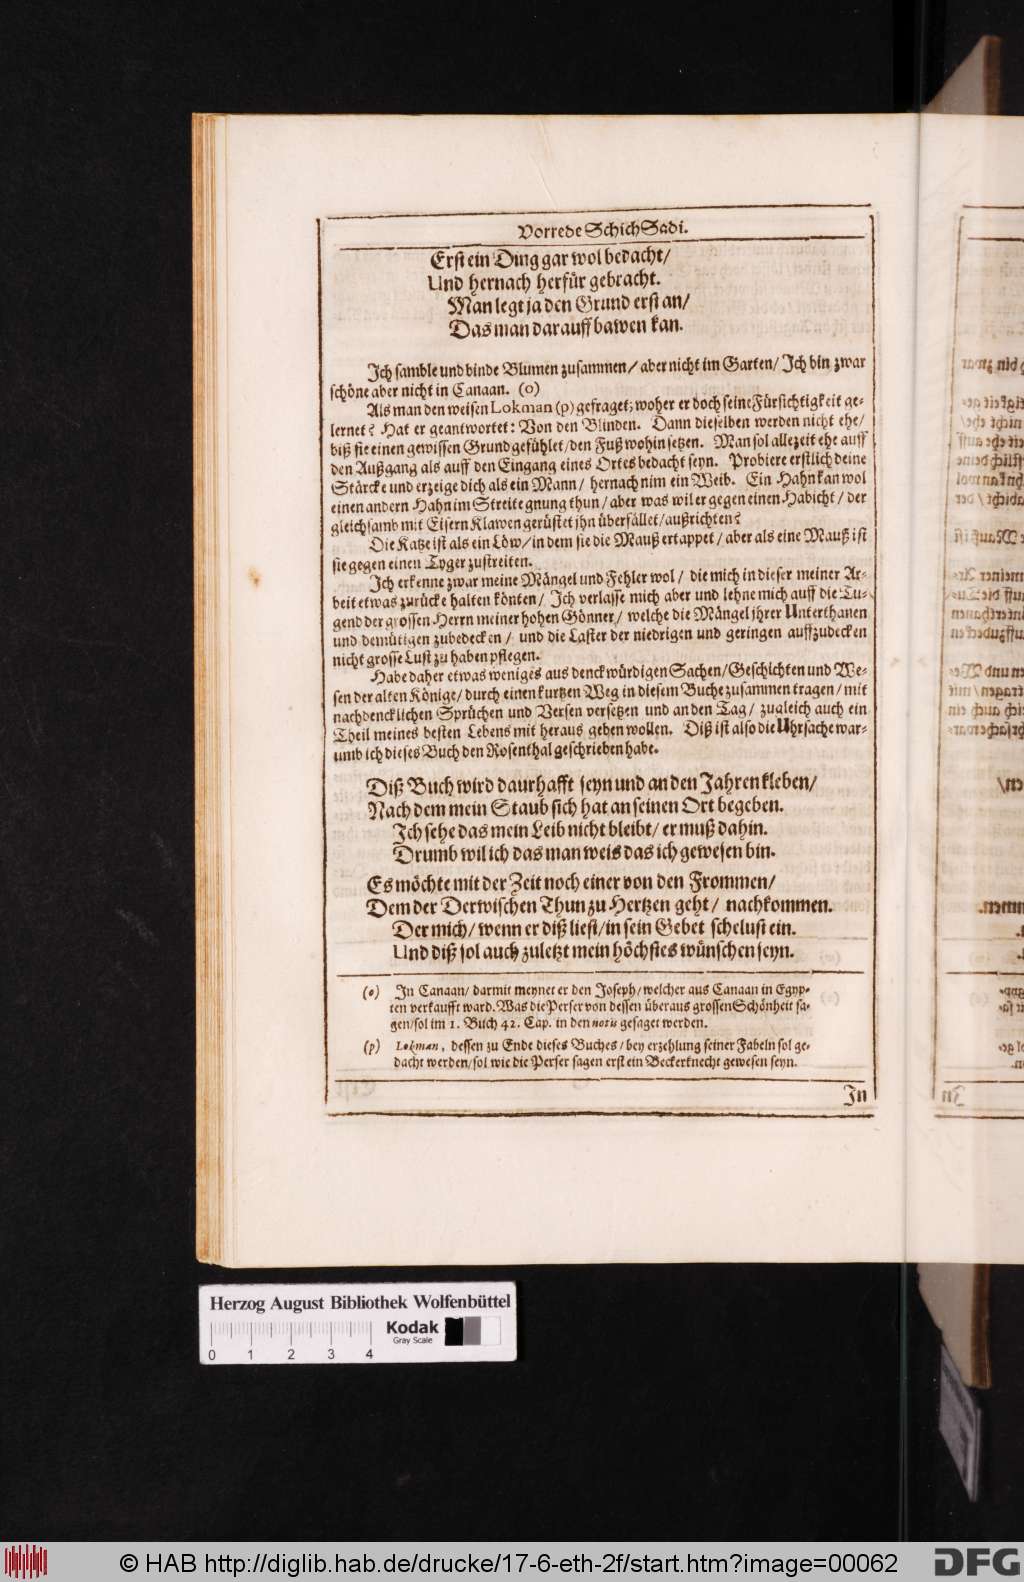 Vorrede Schich Sadi.
Erst ein Ding gar wol bedacht/
Und hernach herfür gebracht.
Man legt ja den Grund erst an/
Das man darauff bawen kan.
Ich samble und binde Blumen zusammen/ aber nicht im Garten/ Ich bin zwar
schöne aber nicht in Canaan. (o)
Als man den weisen Lokman (p) gefraget; woher er doch seine Fürsichtigkeit ge-
lernet? Hat er geantwortet: Von den Blinden. Dann dieselben werden nicht ehe/
biß sie einen gewissen Grund gefühlet/ den Fuß wohin setzen. Man sol allezeit ehe auff
den Außgang als auff den Eingang eines Ortes bedacht seyn. Probiere erstlich deine
Stärcke und erzeige dich als ein Mann/ hernach nim ein Weib. Ein Hahn kan wol
einen andern Hahn im Streite gnung thun/ aber was wil er gegen einen Habicht/ der
gleichsamb mit Eisern Klawen gerüstet ihn überfället/ außrichten?
Die Katze ist als ein Löw/ in dem sie die Mauß ertappet/ aber als eine Mauß ist
sie gegen einen Tyger zustreiten.
Ich erkenne zwar meine Mängel und Fehler wol/ die mich in dieser meiner Ar-
beit etwas zurücke halten könten/ Ich verlasse mich aber und lehne mich auff die Tu-
gend der grossen Herrn meiner hohen Gönner/ welche die Mängel jhrer Unterthanen
und demütigen zubedecken/ und die Laster der niedrigen und geringen auffzudecken
nicht grosse Lust zu haben pflegen.
Habe daher etwas weniges aus denckwürdigen Sachen/ Geschichten und We-
sen der alten Könige/ durch einen kurtzen Weg in diesem Buche zusammen tragen/ mit
nachdencklichen Sprüchen und Versen versetzen und an den Tag/ zugleich auch ein
Theil meines besten Lebens mit heraus geben wollen. Diß ist also die Uhrsache war-
umb ich dieses Buch den Rosenthal geschrieben habe.
Diß Buch wird daurhafft seyn und an den Jahren kleben/
Nach dem mein Staub sich hat an seinen Ort begeben.
Ich sehe das mein Leib nicht bleibt/ er muß dahin.
Drumb wil ich das man weis das ich gewesen bin.
Es möchte mit der Zeit noch einer von den Frommen/
Dem der Derwischen Thun zu Hertzen geht/ nachkommen.
Der mich/ wenn er diß liest/ in sein Gebet schelust ein.
Und diß sol auch zuletzt mein höchstes wünschen seyn.
(o) In Canaan/ darmit meynet er den Joseph/ welcher aus Canaan in Egyp-
ten verkaufft ward. Was die Perser von dessen überaus grossen Schönheit sa-
gen/ sol im 1. Buch 42. Cap. in den notis gesaget werden.
(p) Lokman, dessen zu Ende dieses Buches/ bey erzehlung seiner Fabeln sol ge-
dacht werden/ sol wie die Perser sagen erst ein Beckerknecht gewesen seyn.
In
Herzog August Bibliothek Wolfenbüttel
Kodak
Gray Scale
0 1 2 3 4
© HAB http://diglib.hab.de/drucke/17-6-eth-2f/start.htm?image=00062
DFG